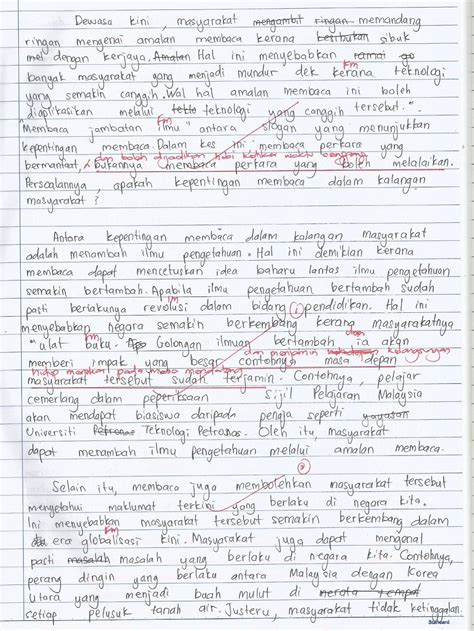 Dewasa kini, masyarakat mengambil ringan memandang
ringan mengenai amalan membaca kerana sibuk
dengan kerjaya. Amalan Hal ini menyebabkan ramai
banyak masyarakat yang menjadi mundur dek kerana teknologi
yang semakin canggih. Wal hal amalan membaca ini boleh
diaplikasikan melalui teknologi yang canggih tersebut.
"Membaca jambatan ilmu" antara slogan yang menunjukkan
kepentingan membaca. Dalam kes ini, membaca perkara yang
dan boleh dijadikan
bermanfaat, bukannya membaca perkara yang boleh melalaikan.
Persoalannya, apakah kepentingan membaca dalam kalangan
masyarakat?
Antara kepentingan membaca dalam kalangan masyarakat
adalah menambah ilmu pengetahuan. Hal ini demikian kerana
membaca dapat mencetuskan idea baharu lantas ilmu pengetahuan
semakin bertambah. Apabila ilmu pengetahuan bertambah sudah
pasti berlakunya revolusi dalam bidang pendidikan. Hal ini
menyebabkan negara semakin berkembang kerana masyarakatnya
"ulat buku". Golongan ilmuan bertambah, ia akan
dan menjamin
memberi impak yang besar contohnya masa depan
hidup mereka pada masa
masyarakat tersebut sudah terjamin. Contohnya, pelajar
cemerlang dalam peperiksaan Sijil Pelajaran Malaysia
akan mendapat biasiswa daripada seperti yayasan
Universiti Petronas Teknologi Petronas. Oleh itu, masyarakat
dapat menambah ilmu pengetahuan melalui amalan membaca.
Selain itu, membaca juga membolehkan masyarakat tersebut
mengetahui maklumat terkini yang berlaku di negara kita.
Ini menyebabkan masyarakat tersebut semakin berkembang dalam
era globalisasi kini. Masyarakat juga dapat mengenal
pasti masalah masalah yang berlaku di negara kita. Contohnya,
perang dingin yang berlaku antara Malaysia dengan Korea
Utara yang menjadi buah mulut di
setiap pelusuk tanah air. Justeru, masyarakat tidak ketinggalan